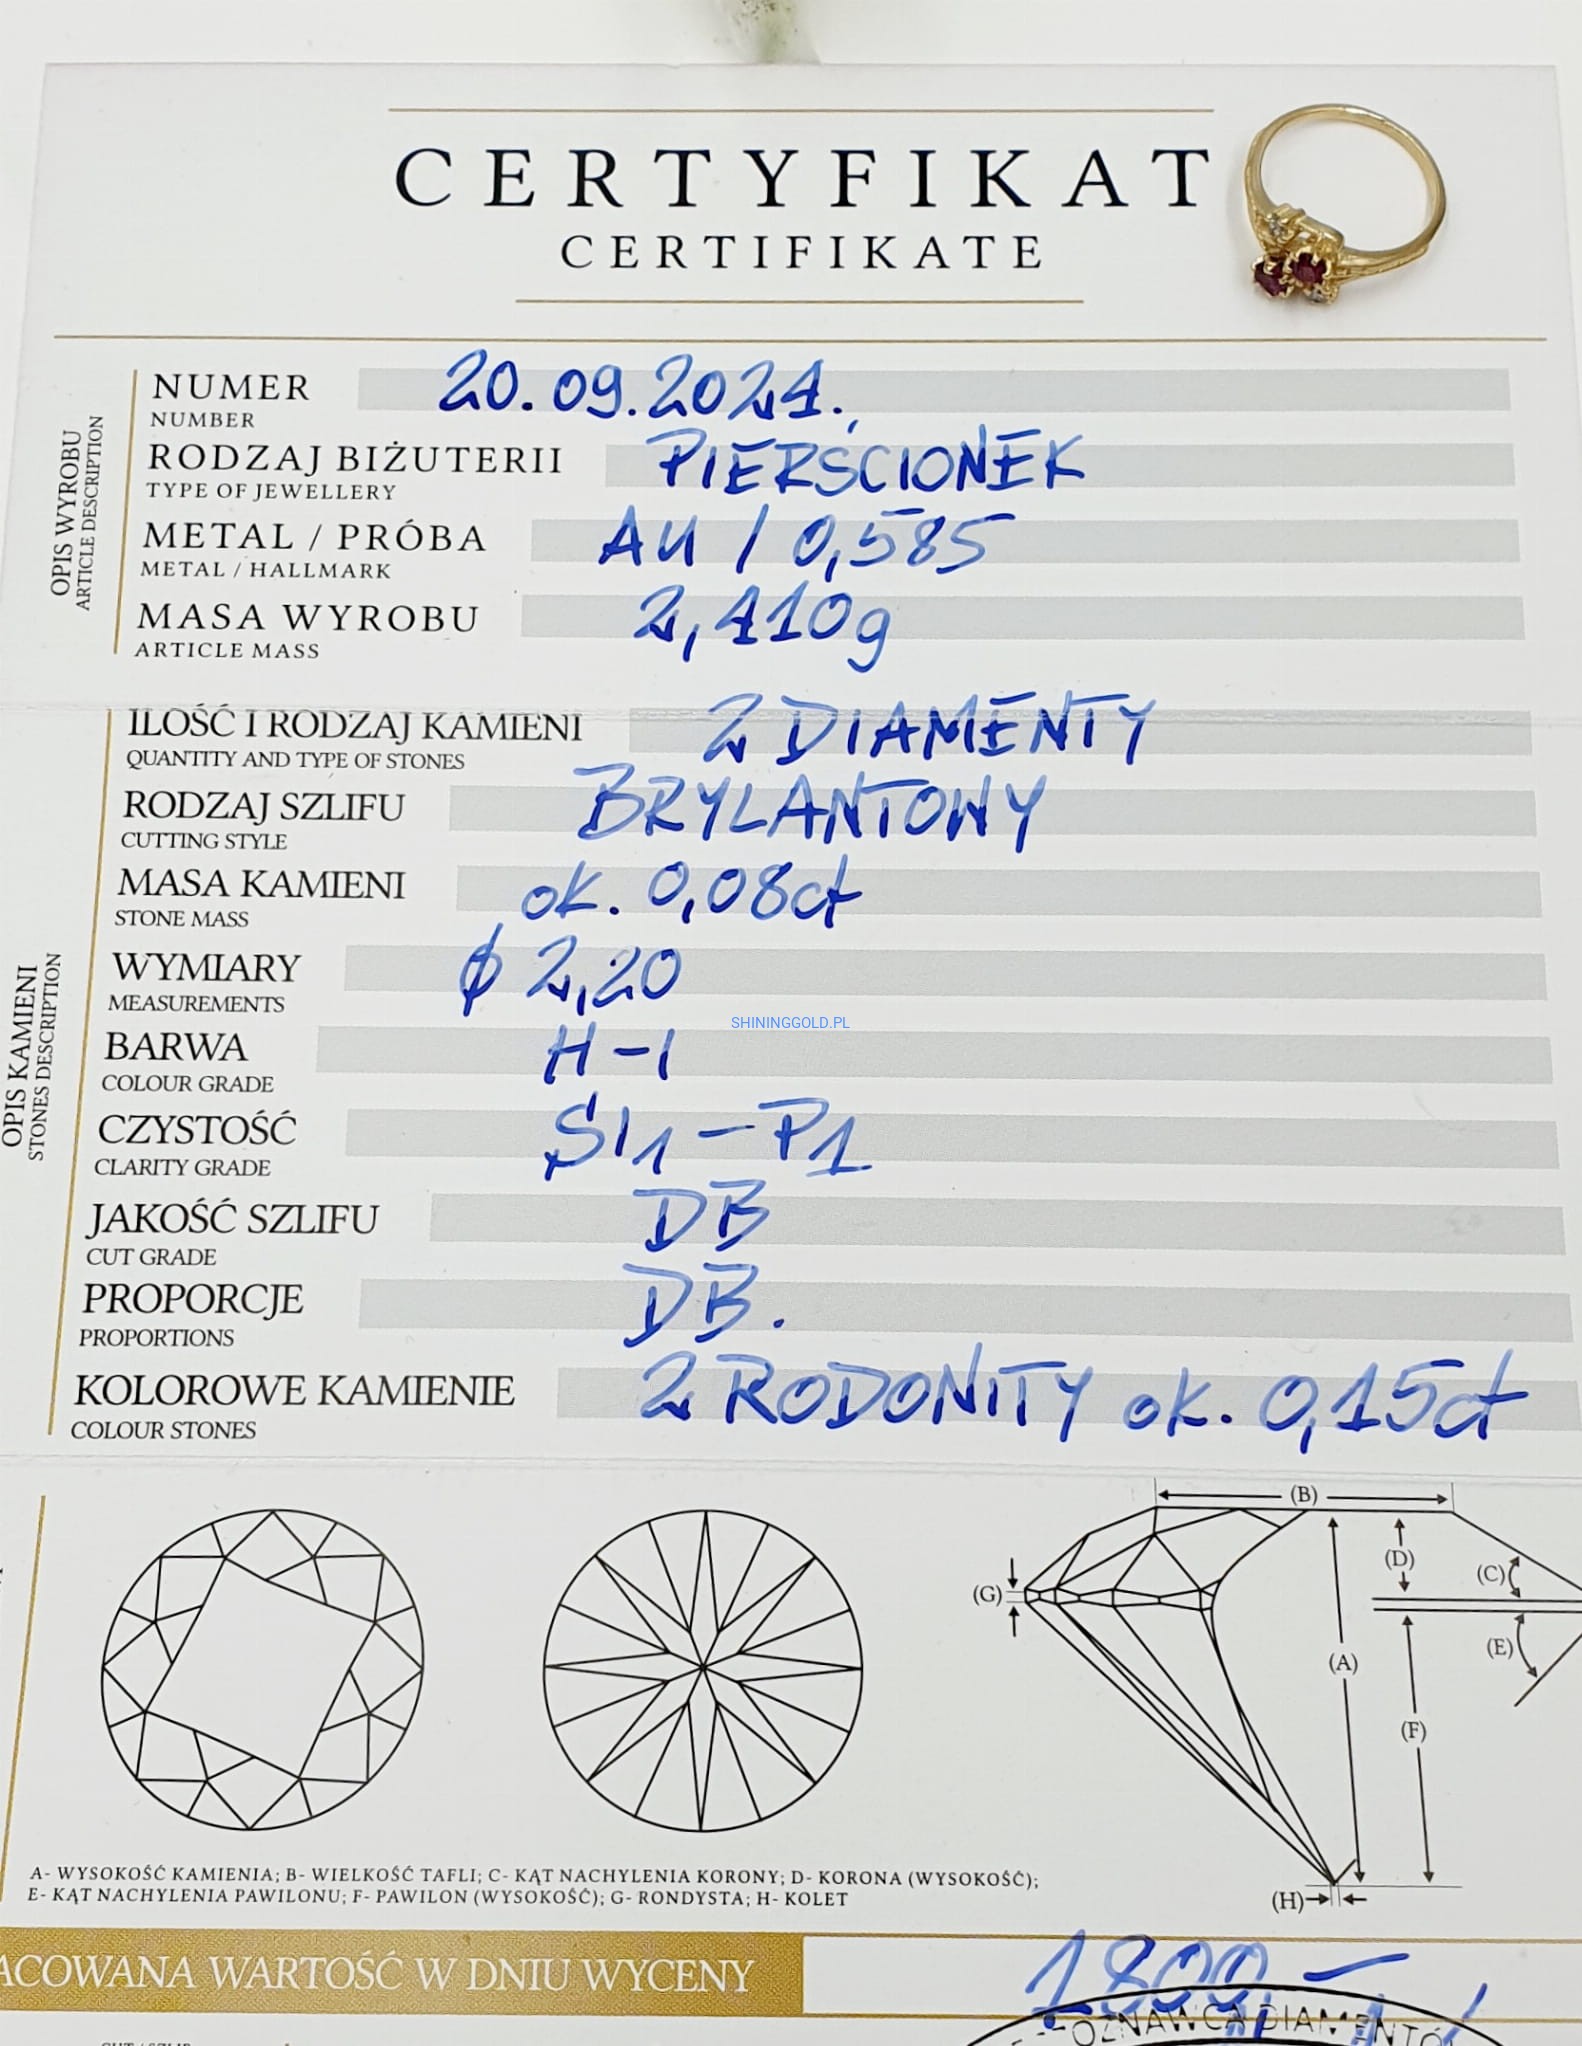 CERTYFIKAT
CERTIFIKATE
OPIS WYROBU
ARTICLE DESCRIPTION
NUMER 20.09.2024.
NUMBER
RODZAJ BIŻUTERII PIERŚCIONEK
TYPE OF JEWELLERY
METAL / PRÓBA AU / 0,585
METAL / HALLMARK
MASA WYROBU 2,410g
ARTICLE MASS
OPIS KAMIENI
STONES DESCRIPTION
ILOŚĆ I RODZAJ KAMIENI 2 DIAMENTY
QUANTITY AND TYPE OF STONES
RODZAJ SZLIFU BRYLANTOWY
CUTTING STYLE
MASA KAMIENI ok. 0,08ct
STONE MASS
WYMIARY ϕ 2,20
MEASUREMENTS
SHININGGOLD.PL
BARWA H-I
COLOUR GRADE
CZYSTOŚĆ SI1 - P1
CLARITY GRADE
JAKOŚĆ SZLIFU DB
CUT GRADE
PROPORCJE DB.
PROPORTIONS
KOLOROWE KAMIENIE 2 RODONITY ok. 0,15ct
COLOUR STONES
(B)
(D)
(C)
(G)
(E)
(A)
(F)
(H)
A- WYSOKOŚĆ KAMIENIA; B- WIELKOŚĆ TAFLI; C- KĄT NACHYLENIA KORONY; D- KORONA (WYSOKOŚĆ);
E- KĄT NACHYLENIA PAWILONU; F- PAWILON (WYSOKOŚĆ); G- RONDYSTA; H- KOLET
ACOWANA WARTOŚĆ W DNIU WYCENY 1800,-
OZNAWCA DIAMENTÓ